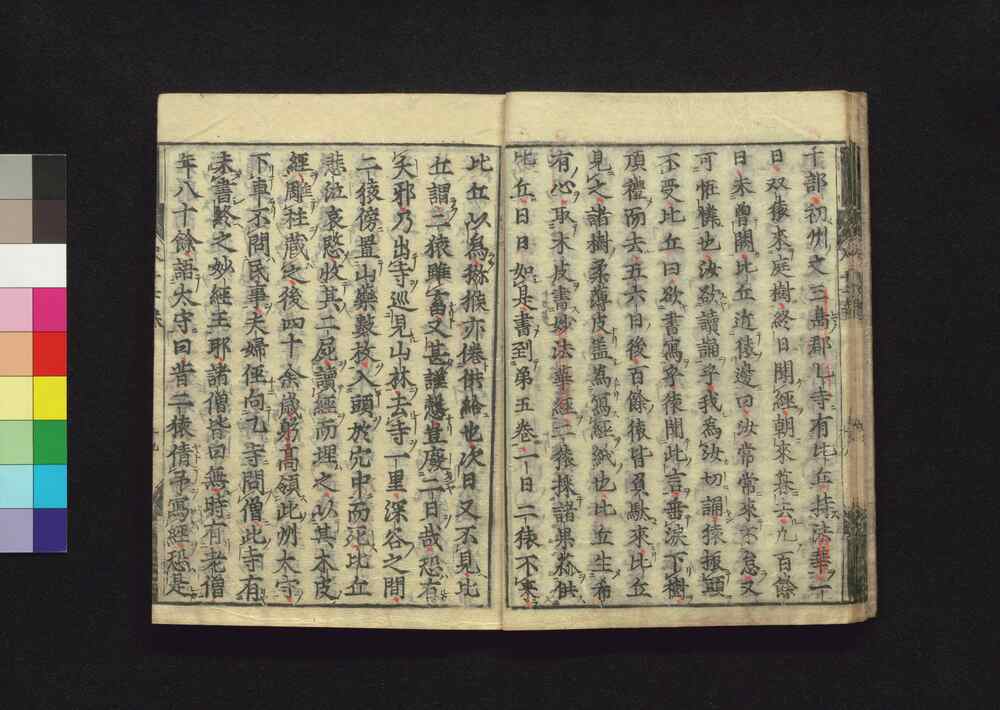 部初州文三嶋郡乙寺有比丘持法華
日双猿来庭樹終日聞經朝來暮去九百餘
日未曾闕比丘近猿邊曰汝常常来不怠又
可恠憐也汝欲讀誦乎我為汝切誦猿振頭
不受比丘曰欲書寫乎猿聞此言垂淚下樹
頂禮而去五六日後百餘猿皆負馱來比丘
見之諸樹柔薄皮盖為寫經紙也比丘生希
有心取木皮書妙法華經二猿採諸菓菻供
比丘日日如是書到第五卷一日二猿不来
比丘以為猕猴亦倦供給也次日又不見比
丘謂二猿雖畜又甚謹懃豈廢二日哉恐有
夭邪乃出寺巡見山林去寺一里深谷之間
二猿傍置山藥數枚入頭於穴中而死比丘
悲泣哀愍收其二屍讀經而埋之以其木皮
經雕柱藏之後四十余歲躬高領此州太守
下車不問民事夫婦徑向乙寺問僧此寺有
未書終之妙經王耶諸僧皆曰無時有老僧
年八十餘語太守曰昔二猿倩予寫經恐是